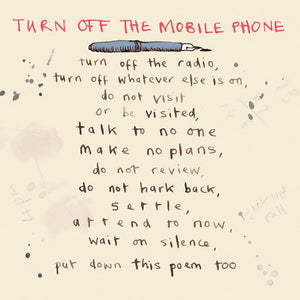 TURN OFF THE MOBILE PHONE
turn off the radio,
turn off whatever else is on,
do not visit
or be visited,
talk to no one
make no plans,
do not review,
do not hark back,
settle,
attend to now,
wait on silence,
put down this poem too